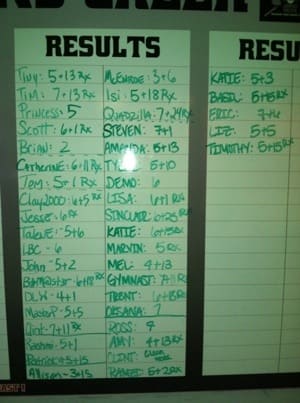 RESULTS
Tiny: 5+13 Rx
Tim: 7+13 Rx
Princess: 5
Scott: 6+1 Rx
Brian: 2
Catherine: 6+11 Rx
Tom: 5+1 Rx
Clay2000: 6+5 Rx
Jesse: 6 Rx
5+6
LBC - 6
John - 5+2
DLW - 4+1
5+5
Clint - 7+11 Rx
5+1
Patrick 4+5+15
Allison - 3+15
McEnroe: 3+6
Isi: 5+18 Rx
Quadzilla: 7+24 Rx
Steven: 7+1
Amanda: 5+13
5+10
Demo: 6
Lisa: 6+11
Sinclair 6+25 Rx
Katie: 6+15 Rx
Marvin: 5 Rx
Mel: 4+13
Gymnast: 7+11 Rx
Trent: 6+18 Rx
Oksana: 7
Ross: 9
Amy: 4+13 Rx
Clint:
5+2 Rx
RESU
Katie: 5+3
Basil: 5+15 Rx
Eric:
Liz: 5+5
Timothy: 5+15 Rx